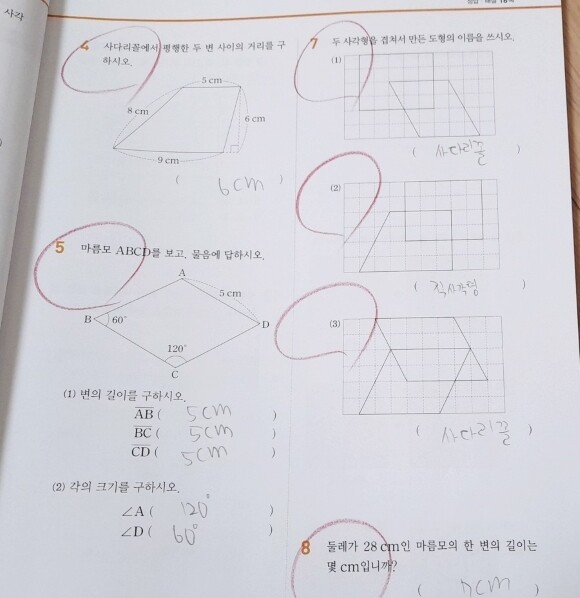 사각
4 사다리꼴에서 평행한 두 변 사이의 거리를 구
하시오.
5 cm
8 cm
6 cm
9 cm
( 6cm )
5 마름모 ABCD를 보고, 물음에 답하시오.
A
5 cm
B 60° D
120°
C
(1) 변의 길이를 구하시오.
AB ( 5cm )
BC ( 5cm )
CD ( 5cm )
(2) 각의 크기를 구하시오.
∠A ( 120° )
∠D ( 60° )
7 두 사각형을 겹쳐서 만든 도형의 이름을 쓰시오.
(1)
( 사다리꼴 )
(2)
( 직사각형 )
(3)
( 사다리꼴 )
8 둘레가 28 cm인 마름모의 한 변의 길이는
몇 cm입니까?
( 7cm )